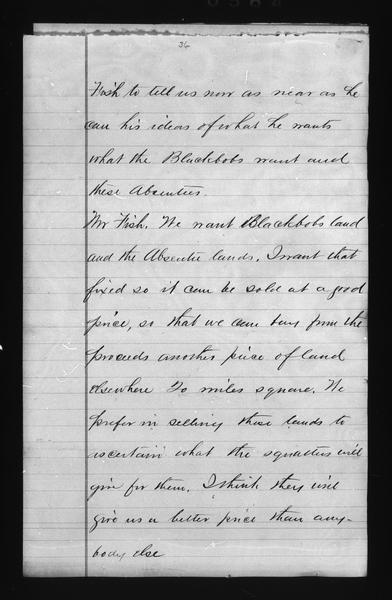 36
Fish to tell us now as near as he
can his ideas of what he wants
what the Blackbobs want and
these Absentees.
Mr Fish. We want Blackbobs land
and the Absentee lands. I want that
fixed so it can be sold at a good
price, so that we can buy from the
proceeds another piece of land
elsewhere miles square. We
prefer in selling these lands to
ascertain what the squatters will
give for them. I think they will
give us a better price than any-
body else